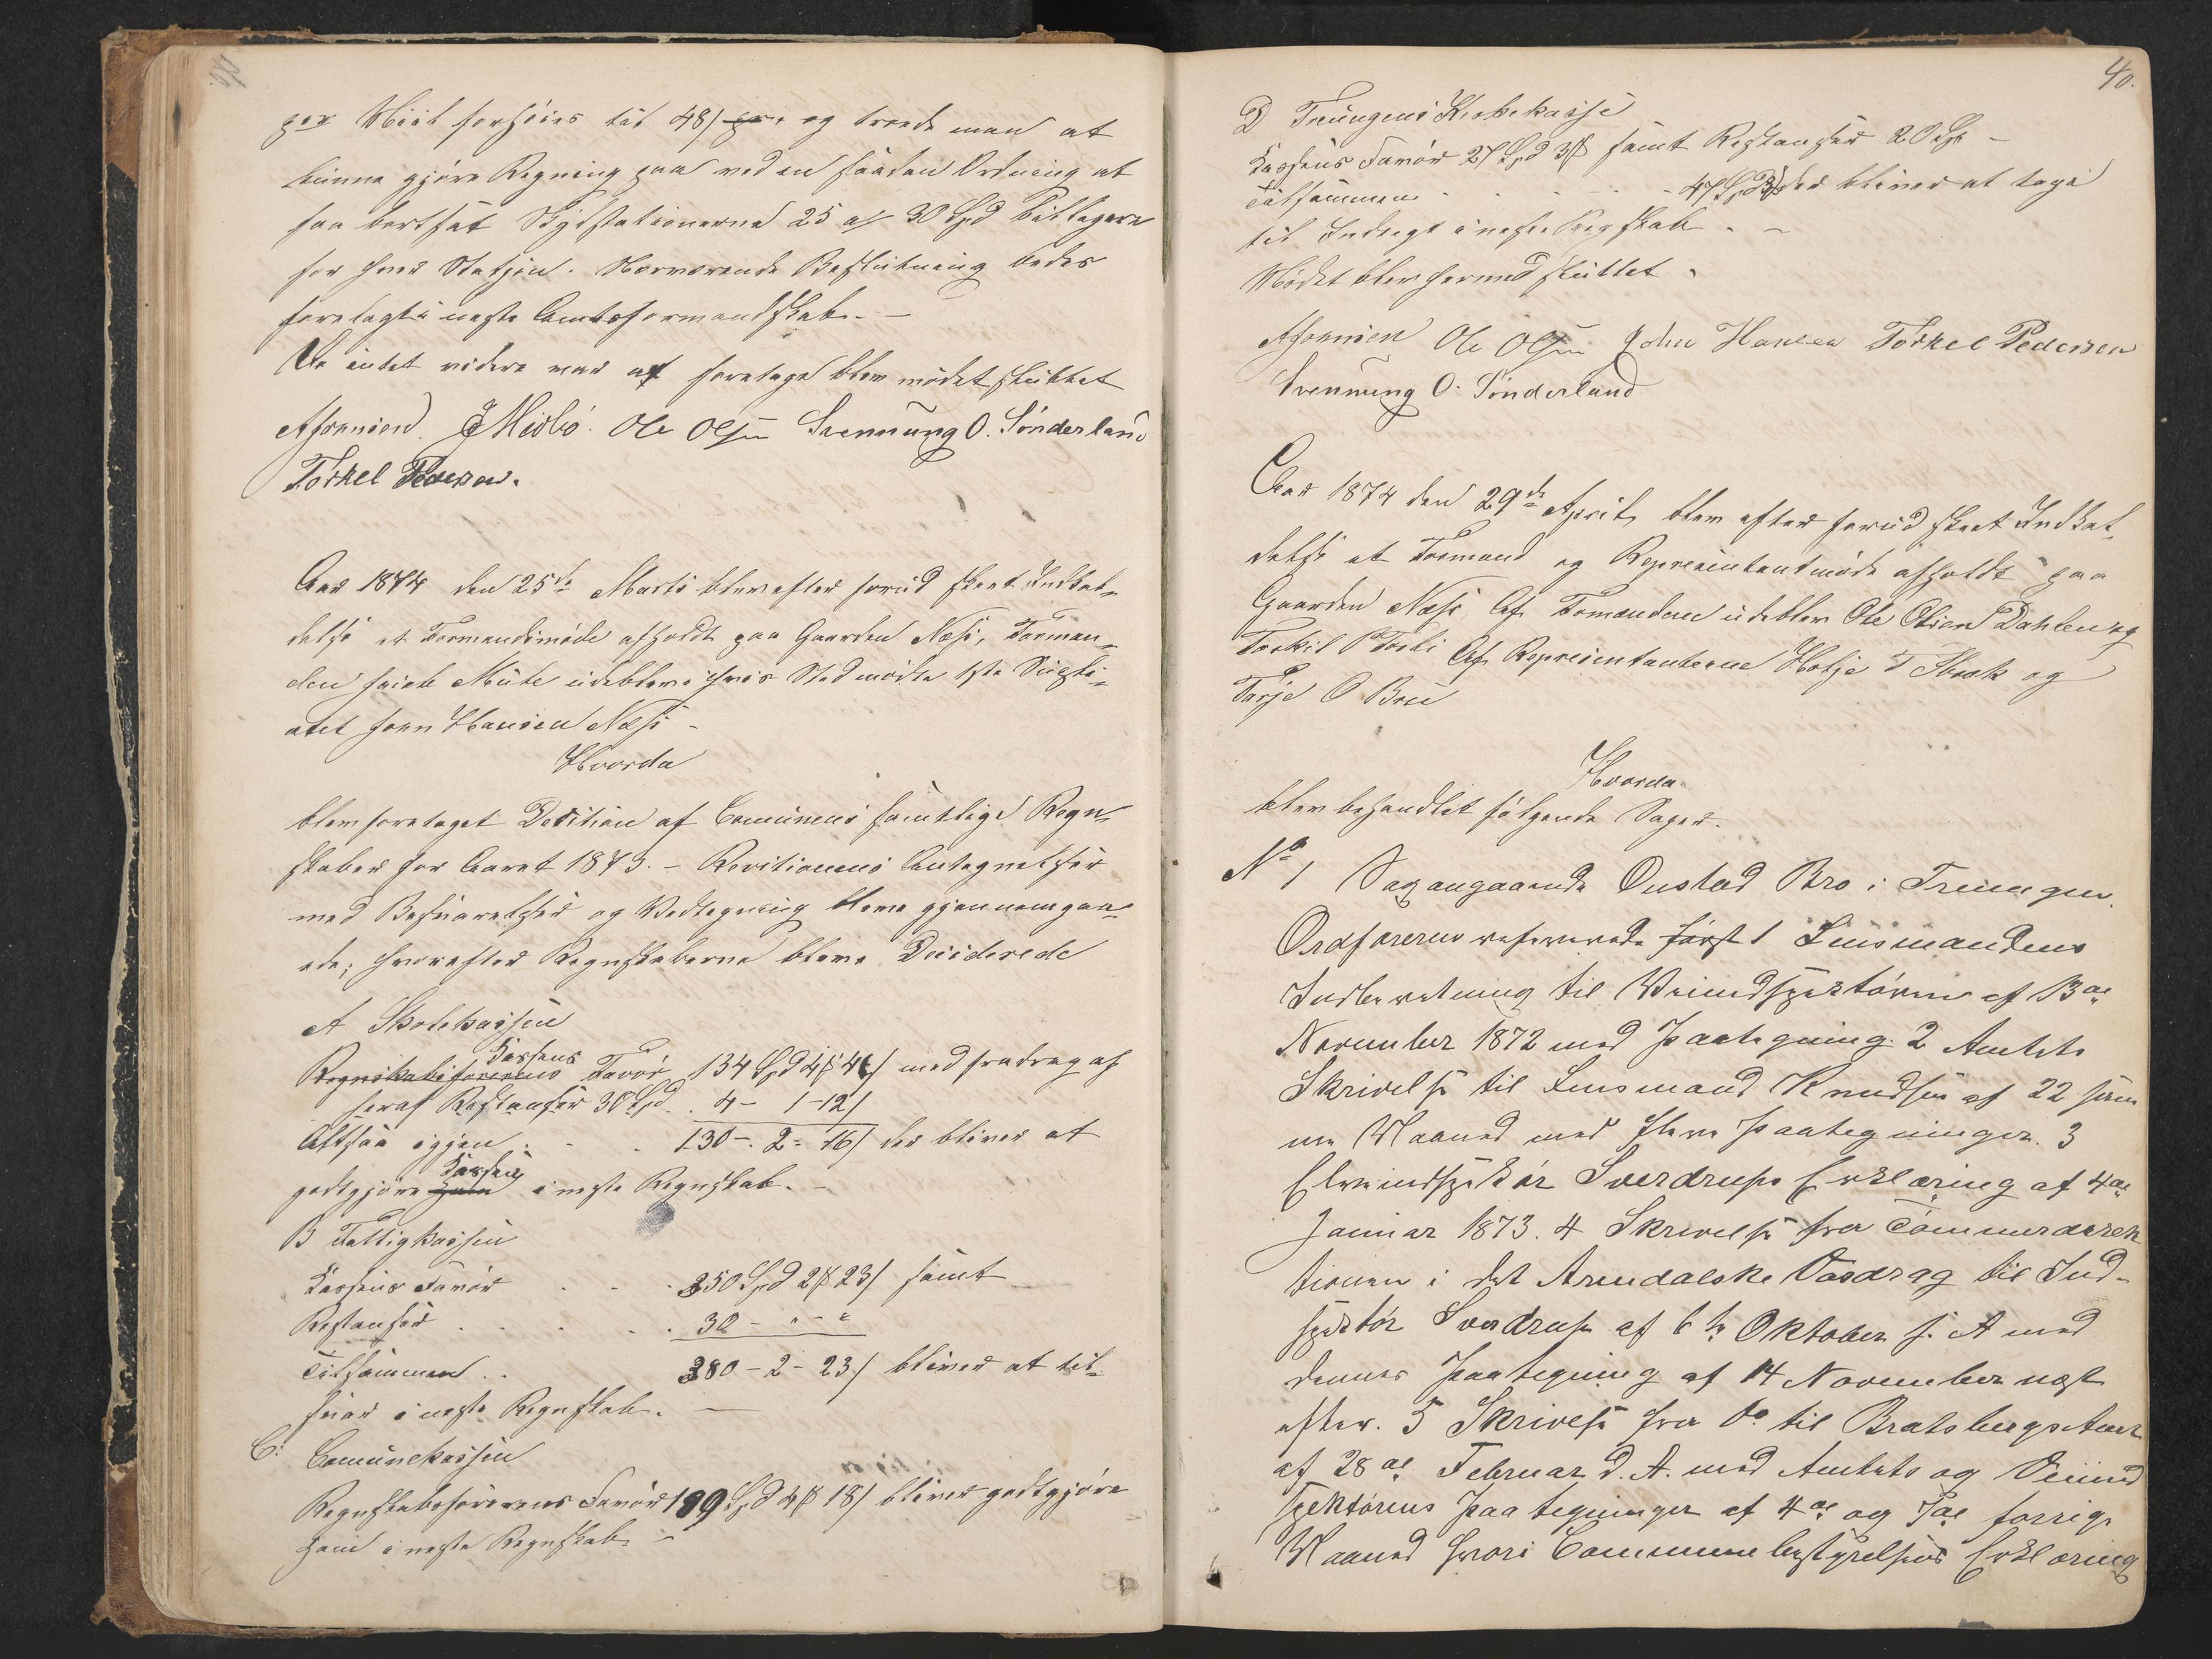 per Miil forhøies til 48/ pr. og troede man at
kunne gjøre Regning paa ved en saadan Ordning at
faa bortsat Skydsstationerne 25 a/ 30 Spd billigere
for hver Station. Nærværende Beslutning bedes
forelagt i neste Amtsformandskab. —
Da intet videre var at foretage blev mødet sluttet
AJohnsen. Ole Olsen Svennung O. Sønderland
Torkel Pedersen.
Aar 1874 den 25de Marts blev efter forud skeet Indkal-
delse et Formandsmøde afholdt paa Gaarden Næss, Forman-
den udeblev i hvis Sted mødte 1ste Supli-
ant John Hansen Næss —
Hvorda
blev foretaget Desition af Comunens samtlige Regn-
skaber for Aaret 1873. — Revitionens Antegnelser
med Besvarelser og Vedtegning bleve gjennemgaa-
ede; hvorefter Regnskaberne bleve Desiderede
A Skolekassen
Regnskabsførerens Kassens Favør 134 Spd 4 ß 4/ med fradrag af
heraf Restanser 30 Spd. . 4 - 1 - 12/
Altsaa igjen . . . 130 - 2 - 16/ der bliver at
godtgjøre ham Kassen i neste Regnskab. —
B Fattigkassen
Kassens Favør . . . 350 Spd 2 ß 23/ samt
Restanser . . . . . 30 - " - "
Tilsammen . . 380 - 2 - 23/ bliver at til-
føies i neste Regnskab. —
C: Comunekassen
Regnskabsførerens Favør 189 Spd 4 ß 18/ bliver godtgjøre
ham i neste Regnskab —
40.
D Treungens Kirkekasse
Kassens Favør 27 Spd 3 ß samt Restanser 20 Sp —
Tilsammen . . . . . 47 Spd 3 ß der bliver at tage
til Indtegt i neste Regnskab. —
Mødet blev hermed sluttet.
AJohnsen Ole Olsen John Hansen Torkel Pedersen
Svennung O. Sønderland
Aar 1874 den 29de April blev efter forud skeet Indkal-
delse et Formand og Representantmøde afholdt paa
Gaarden Næss. Af Formændene udeblev Ole Olsen Dahlen og
Torkil P Felli Af Representanterne Hølje T Skræk og
Tarje O Breu
Hvorda
blev behandlet følgende Sager.
No 1 Sag angaaende Onstad Bro i Treungen.
Ordførerens refererede først 1 Lensmandens
Indberetning til Veiindspektøren af 13de
November 1872 med Paategning. 2 Amtets
Skrivelse til Lensmand Knudsen af 22 sam
me Maaned med flere Paategninger. 3
Elveindspektør Sverdrups Erklæring af 4de
Januar 1873. 4 Skrivelse fra Tømmerdirek
tionen i det Arendalske Vasdrag til Ind-
spektør Sverdrup af 6te Oktober s. A med
dennes Paategning af 14 November nest
efter. 5 Skrivelse fra Do til Bratsbergs Amt
af 28de Februar d. A. med Amtets og Veiind
spektørens Paategninger af 4de og 7de forrige
Maaned hvori Communebestyrelsens Erklæring